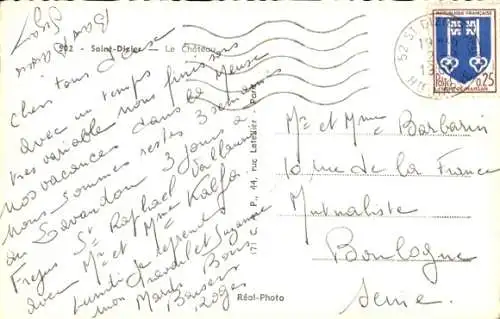 902 - Saint-Dizier - Le Château
Chers tous deux
avec un temps
très variable nous finissons
nos vacances dans la Meuse
nous sommes restés 3 semaines
au Lavandou 3 jours à
Frejus St Raphael Vallauris
avec Mr et Mme
lundi je reprend
mon travail et Suzanne
Mardi Bons
Baisers
Roger
Réal-Photo
P., 44, rue Letellier - Paris
REPUBLIQUE FRANÇAISE
0,25
52 ST DIZIER
Mr et Mme Barbarin
10 rue de la France
Mutualiste
Boulogne
Seine.